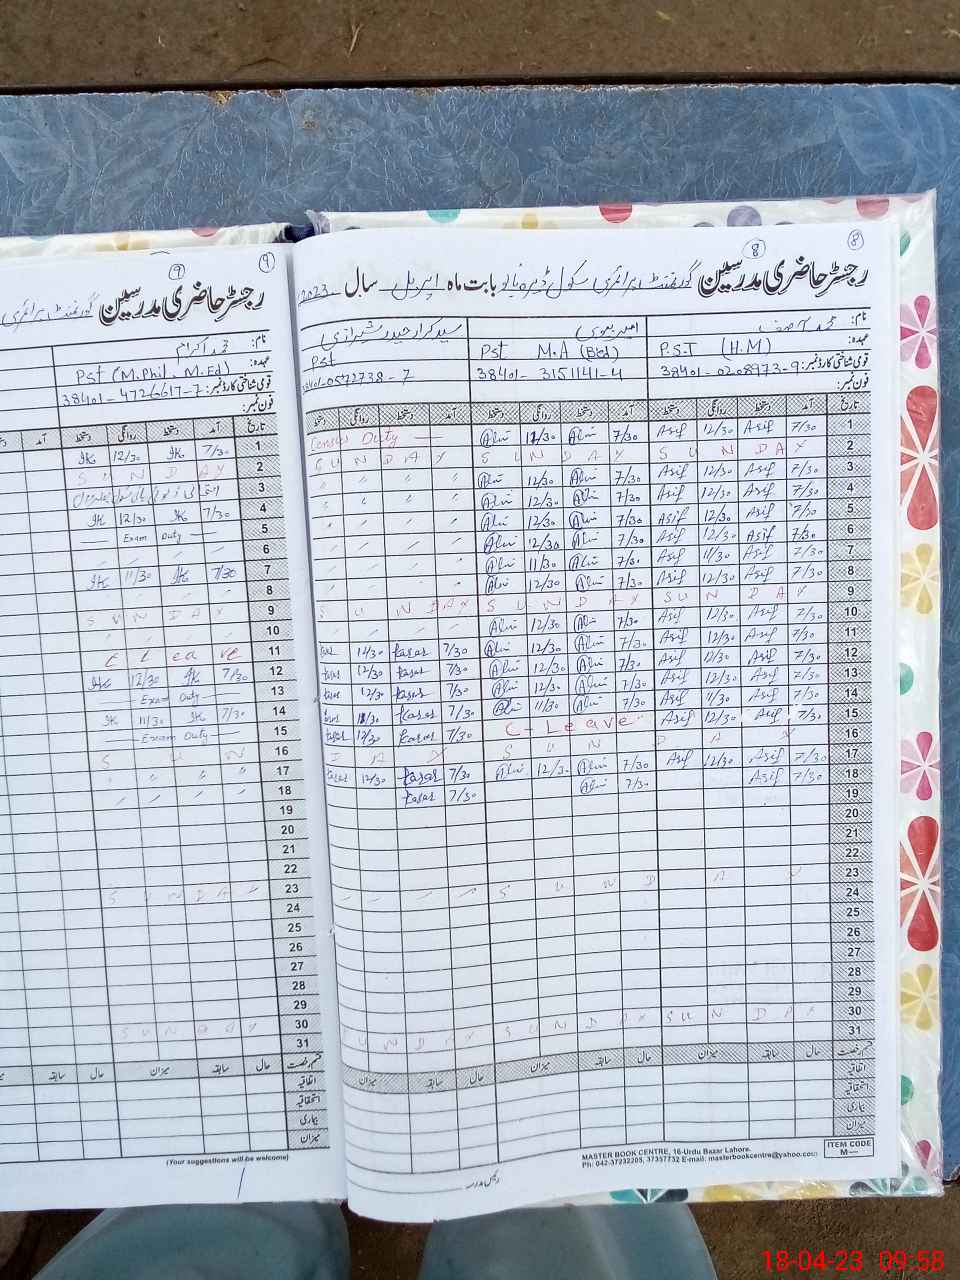 رجسٹر حاضری مدرسین گورنمنٹ پرائمری سکول بابت ماہ اپریل سال 2023
8
8
نام: محمد آصف
عہدہ: P.S.T (H.M)
قومی شناختی کارڈ نمبر: 38401-0208973-9
فون نمبر:
Pst M.A (B.ed)
38401-3151141-4
سید کرار حیدر شیرازی
Pst
38401-0572738-7
تاریخ آمد دستخط روانگی دستخط آمد دستخط روانگی دستخط آمد دستخط روانگی
1 7/30 Asif 12/30 Asif 7/30 12/30 Census Duty
2 SUNDAY SUNDAY SUNDAY
3 7/30 Asif 12/30 Asif 7/30 12/30
4 7/30 Asif 12/30 Asif 7/30 12/30
5 7/30 Asif 12/30 Asif 7/30 12/30
6 7/30 Asif 12/30 Asif 7/30 12/30
7 7/30 Asif 11/30 Asif 7/30 11/30
8 7/30 Asif 12/30 Asif 7/30 12/30
9 SUNDAY SUNDAY SUNDAY
10 7/30 Asif 12/30 Asif 7/30 12/30
11 7/30 Asif 12/30 Asif 7/30 12/30 7/30 karar 12/30
12 7/30 Asif 12/30 Asif 7/30 12/30 7/30 karar 12/30
13 7/30 Asif 12/30 Asif 7/30 12/30 7/30 karar 12/30
14 7/30 Asif 11/30 Asif 7/30 11/30 7/30 karar 11/30
15 7/30 Asif 12/30 Asif C-Leave 7/30 karar 12/30
16 SUNDAY
17 7/30 Asif 12/30 Asif 7/30 12/30 7/30 karar 12/30
18 7/30 Asif 7/30 7/30 karar
19
20
21
22
23 SUNDAY
24
25
26
27
28
29
30 SUNDAY SUNDAY SUNDAY
31
قسم رخصت حال سابقہ میزان حال سابقہ میزان
اتفاقیہ
استحقاقیہ
بیماری
میزان
MASTER BOOK CENTRE, 16-Urdu Bazar Lahore.
Ph: 042-37232205, 37357732 E-mail: masterbookcentre@yahoo.com
ITEM CODE
M—
رئیس مدرسہ
رجسٹر حاضری مدرسین گورنمنٹ پرائمری
9
9
نام: محمد اکرام
عہدہ: Pst (M.Phil M.Ed)
قومی شناختی کارڈ نمبر: 38401-4726617-7
فون نمبر:
تاریخ آمد دستخط روانگی دستخط آمد
1 7/30 IK 12/30 IK
2 SUNDAY
3
4 7/30 IK 12/30 IK
5 Exam Duty
6
7 7/30 IK 11/30 IK
8
9 SUNDAY
10
11 C Leave
12 7/30 IK 12/30 IK
13 Exam Duty
14 7/30 IK 11/30 IK
15 Exam Duty
16 SUN
17
18
19
20
21
22
23 SUNDAY
24
25
26
27
28
29
30 SUNDAY
31
قسم رخصت حال سابقہ میزان حال سابقہ
اتفاقیہ
استحقاقیہ
بیماری
میزان
(Your suggestions will be welcome)
18-04-23 09:58